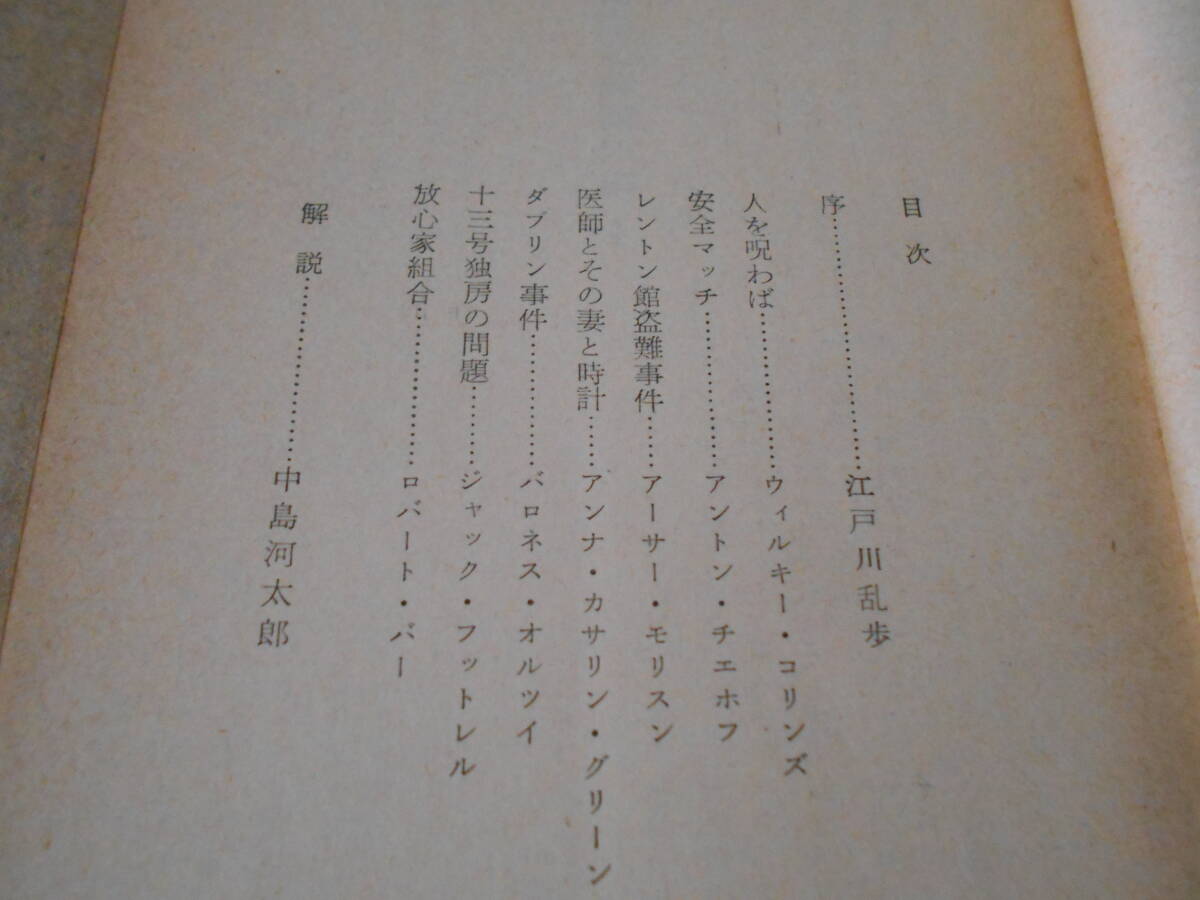 目次
序……………………江戸川乱歩
人を呪わば………………ウィルキー・コリンズ
安全マッチ………………アントン・チエホフ
レントン館盗難事件……アーサー・モリスン
医師とその妻と時計……アンナ・カサリン・グリーン
ダブリン事件……………バロネス・オルツイ
十三号独房の問題………ジャック・フットレル
放心家組合………………ロバート・バー
解説…………………中島河太郎